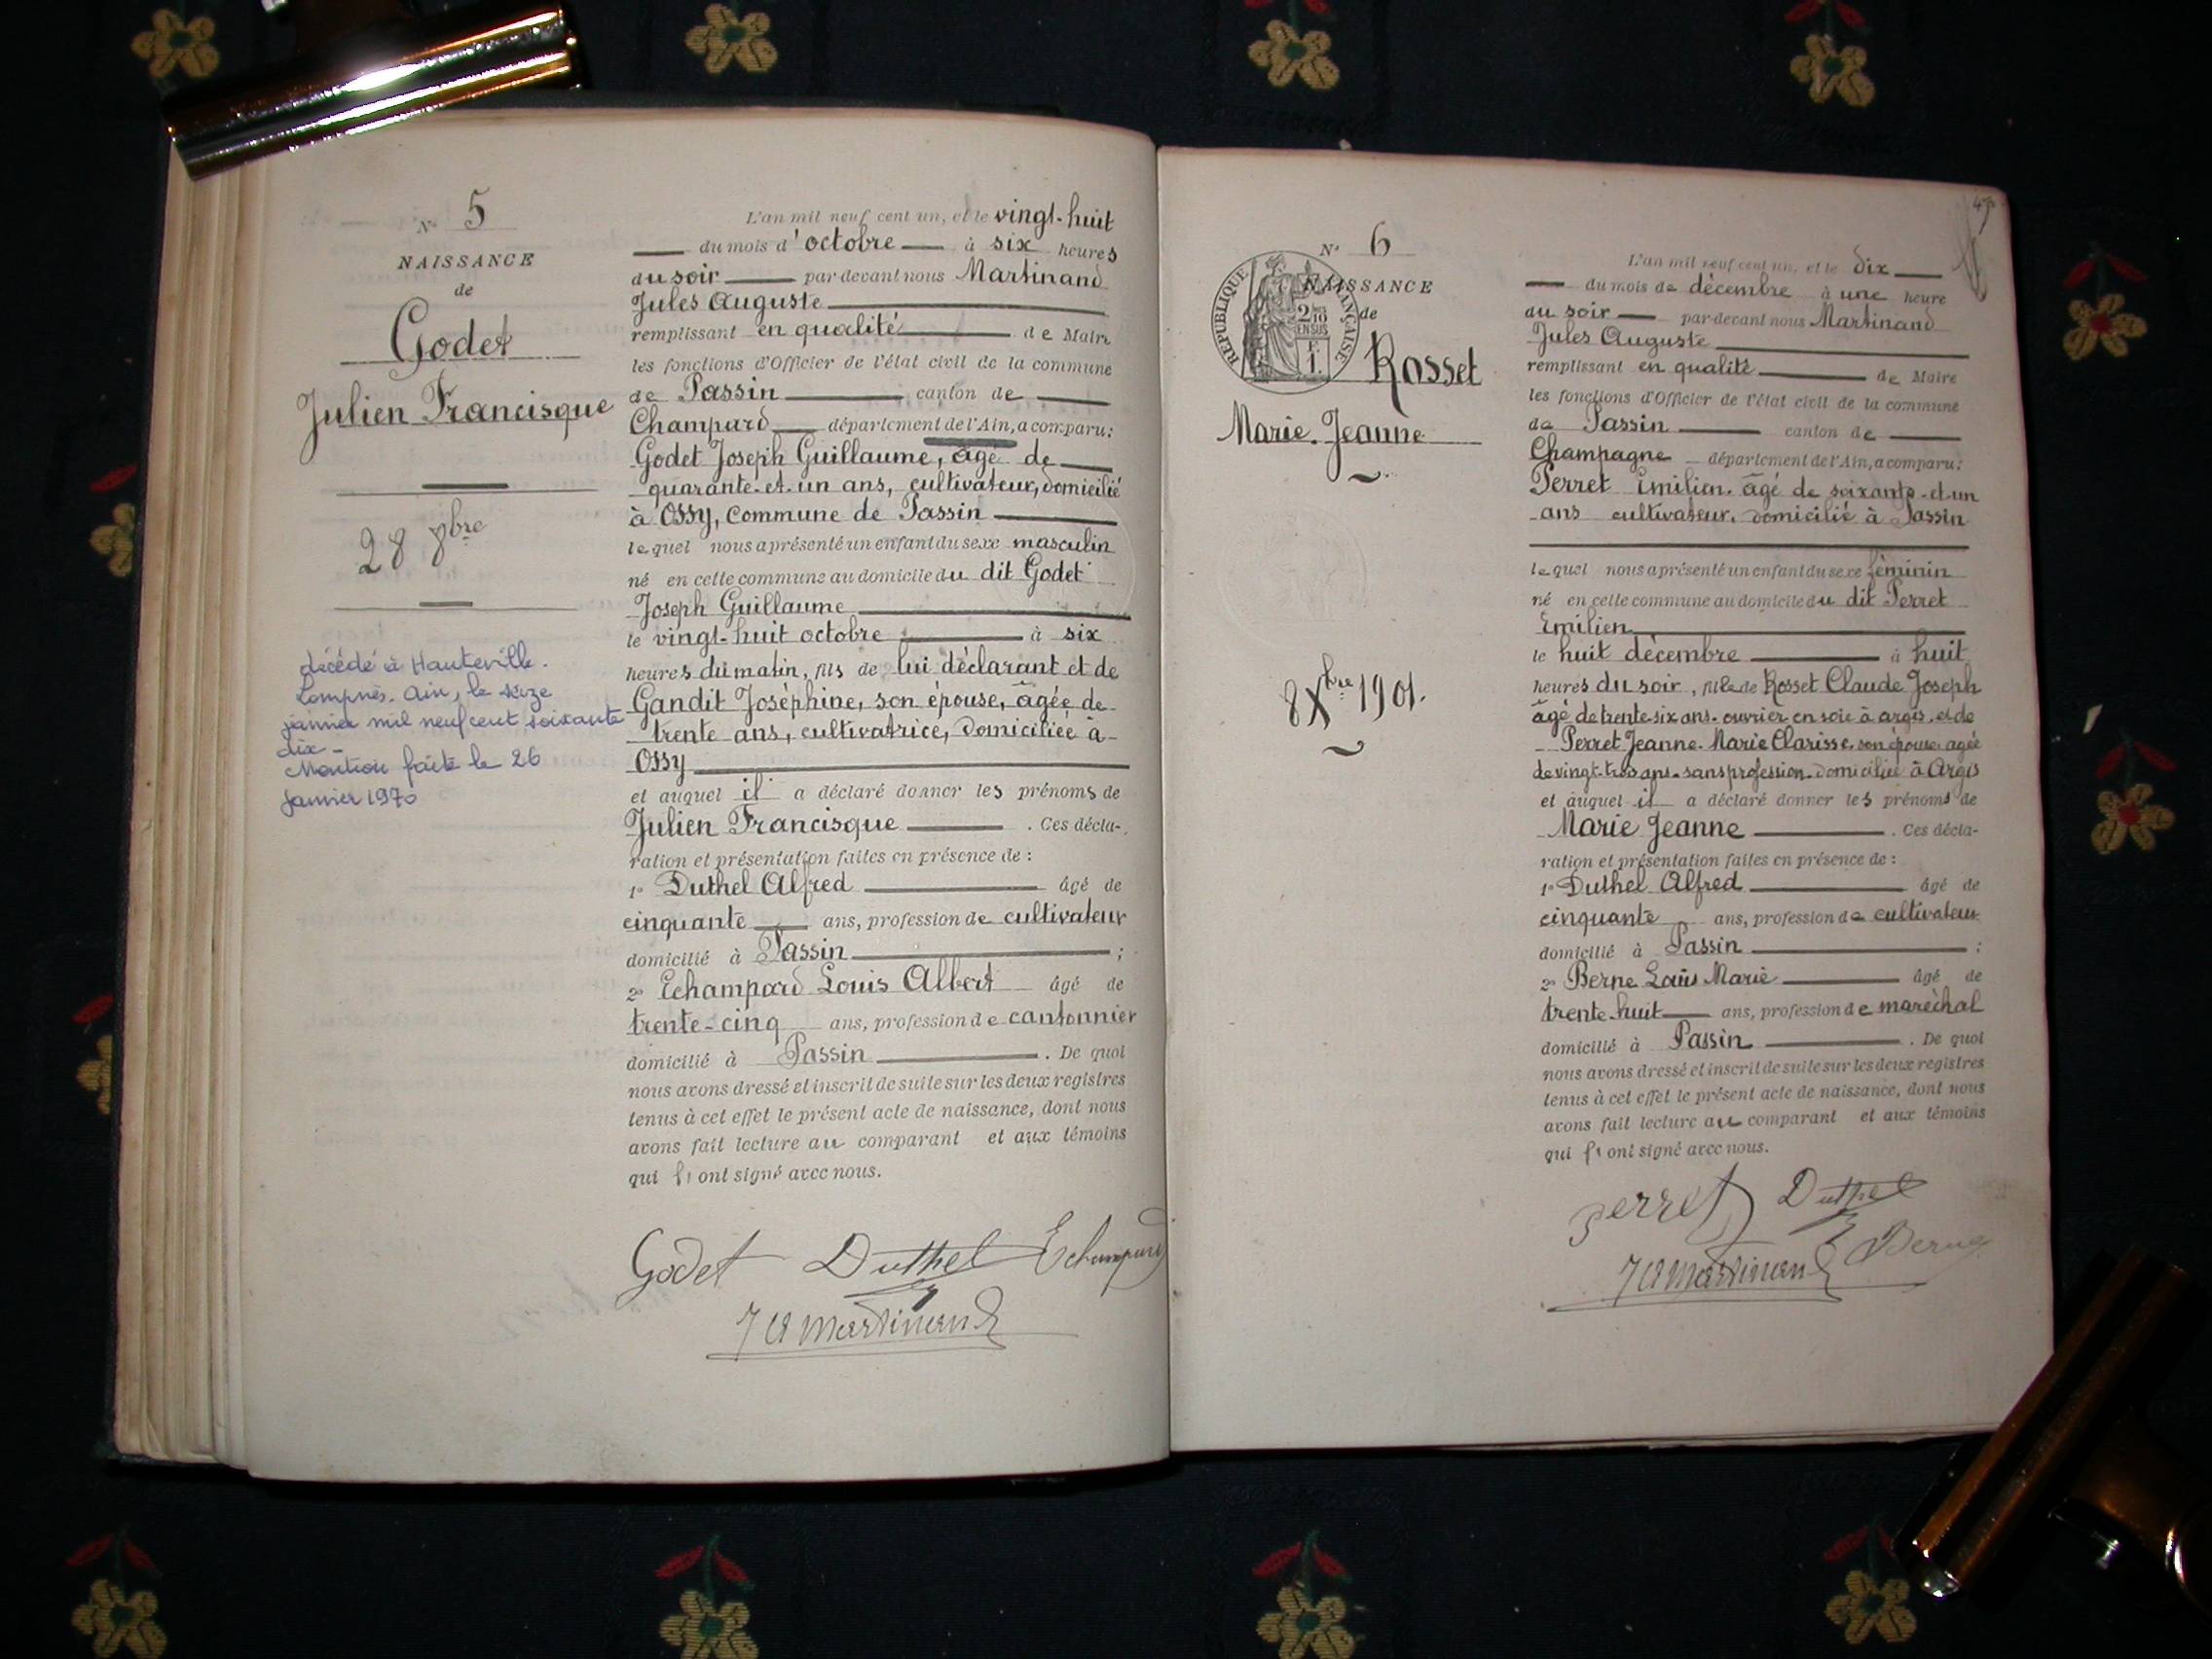 N° 5
NAISSANCE
de
Godet
Julien Francisque
28 8bre
décédé à Hauteville.
Lompnes. Ain, le seize
janvier mil neuf cent soixante
dix -
Mention faite le 26
janvier 1970
L'an mil neuf cent un, et le vingt-huit
du mois d'octobre à six heures
du soir par-devant nous Martinand
Jules Auguste
remplissant en qualité de Maire
les fonctions d'Officier de l'état civil de la commune
de Passin canton de
Champard département de l'Ain, a comparu:
Godet Joseph Guillaume, âgé de
quarante-et-un ans, cultivateur, domicilié
à Ossy, commune de Passin
lequel nous a présenté un enfant du sexe masculin
né en cette commune au domicile du dit Godet
Joseph Guillaume
le vingt-huit octobre à six
heures du matin, fils de lui déclarant et de
Gandit Joséphine, son épouse, âgée de
trente ans, cultivatrice, domiciliée à
Ossy
et auquel il a déclaré donner les prénoms de
Julien Francisque . Ces décla-
ration et présentation faites en présence de :
1° Duthel Alfred âgé de
cinquante ans, profession de cultivateur
domicilié à Passin ;
2° Echampard Louis Albert âgé de
trente-cinq ans, profession de cantonnier
domicilié à Passin . De quoi
nous avons dressé et inscrit de suite sur les deux registres
tenus à cet effet le présent acte de naissance, dont nous
avons fait lecture au comparant et aux témoins
qui l'ont signé avec nous.
Godet Duthel Echampard
J A Martinand
47
N° 6
NAISSANCE
de
RÉPUBLIQUE FRANÇAISE
2/10
EN SUS
F.
1.
Rosset
Marie-Jeanne
8 Xbre 1901.
L'an mil neuf cent un, et le dix
du mois de décembre à une heure
du soir par-devant nous Martinand
Jules Auguste
remplissant en qualité de Maire
les fonctions d'Officier de l'état civil de la commune
de Passin canton de
Champagne département de l'Ain, a comparu:
Perret Emilien. âgé de soixante-et-un
ans cultivateur. domicilié à Passin
lequel nous a présenté un enfant du sexe féminin
né en cette commune au domicile du dit Perret
Emilien
le huit décembre à huit
heures du soir, fille de Rosset Claude Joseph
âgé de trente-six ans. ouvrier en soie à Argis. et de
Perret Jeanne-Marie Clarisse. son épouse. agée
de vingt-trois ans. sans profession. domiciliée à Argis
et auquel il a déclaré donner les prénoms de
Marie Jeanne . Ces décla-
ration et présentation faites en présence de :
1° Duthel Alfred âgé de
cinquante ans, profession de cultivateur
domicilié à Passin ;
2° Berne Louis Marie âgé de
trente-huit ans, profession de maréchal
domicilié à Passin . De quoi
nous avons dressé et inscrit de suite sur les deux registres
tenus à cet effet le présent acte de naissance, dont nous
avons fait lecture au comparant et aux témoins
qui l'ont signé avec nous.
Perret Duthel
J A Martinand Berne